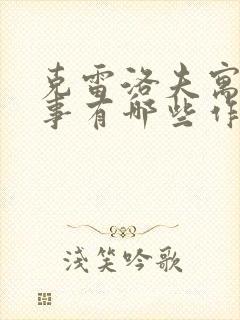 克雷洛夫寓
事有哪些作
浅笑吟歌